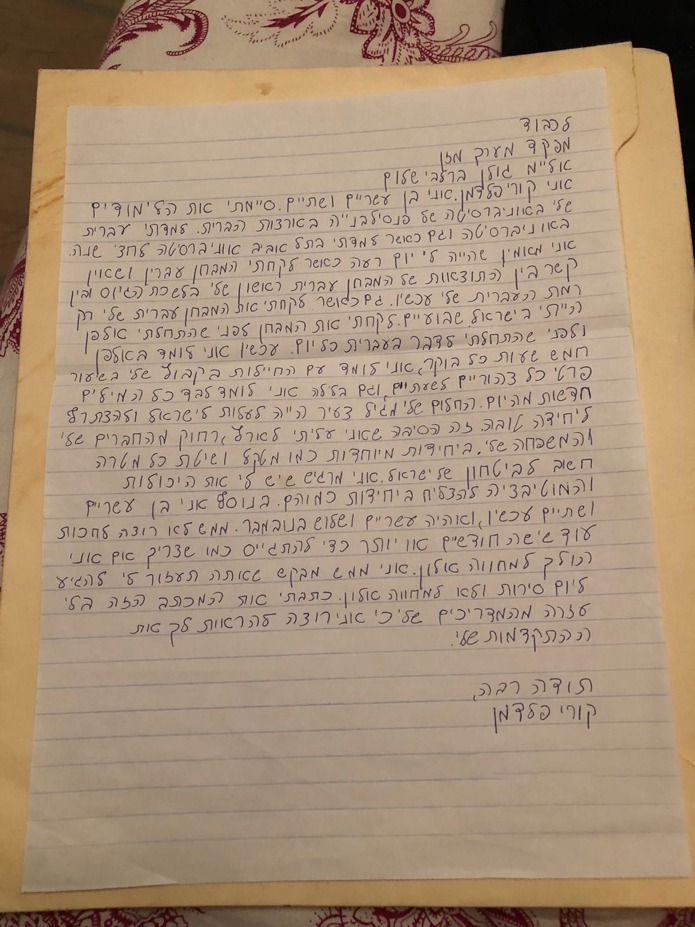 לכבוד
מפקד מערך מזן
אל"מ גולן ברלב שלום
אני קורי פלדמן. אני בן עשריים ושתיים. סיימתי את הלימודים
שלי באוניברסיטה של פנסילבנייה בארצות הברית. למדתי עברית
באוניברסיטה וגם כאשר למדתי בתל אביב אוניברסיטה לחצי שנה.
אני מאמין שהייה לי יום רעה כאשר לקחתי המבחן עברין ושאין
קשר בין התוצאות של המבחן עברית ראשון שלי בלשכת הגיוס ובין
רמת העברית שלי עכשיו. גם כאשר לקחתי את המבחן עברית שלי רק
הייתי בישראל שבועיים. לקחתי את המבחן לפני שהתחלתי אולפן
ולפני שהתחלתי לדבר בעברית כל יום. עכשיו אני לומד באולפן
חמש שעות כל בוקר, אני לומד עם החיילות בקבוץ שלי בשעור
פרטי כל צהוריים לשעתיים, וגם בלילה אני לומד לבד כל המילים
חדשות מהיום. החלום שלי מגיל צעיר הייה לעלות לישראל ולהצתרף
ליחידה טובה. זה הסיבה שאני עליתי לארץ, רחוק מהחברים שלי
והמשפחה שלי. ביחידות מיוחדות כמו מטקל ושיטת כל מטרה
חשוב לביטחון של ישראל. אני מרגיש שיש לי את היכולות
והמוטיבציה להצליח ביחידות כמוהם. בנוסף אני בן עשריים
ושתיים עכשיו, ואהיה עשריים ושלוש בנובמבר. ממש לא רוצה לחכות
עוד שישה חודשיים או יותר כדי להתגייס כמו שצריך אם אני
הולך למחווה אלון. אני ממש מבקש שאתה תעזור לי להגיע
ליום סירות ולא למחווה אלון. כתבתי את המכתב הזה בלי
עזרה מהמדריכים שלי כי אני רוצה להראות לך את
ההתקדמות שלי.
תודה רבה,
קורי פלדמן